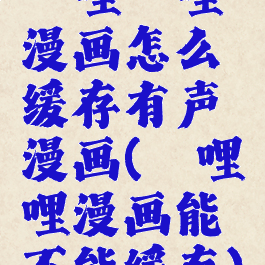 哩 哩
漫画怎么
缓存有声
漫画( 哩
哩漫画能
不能缓存)